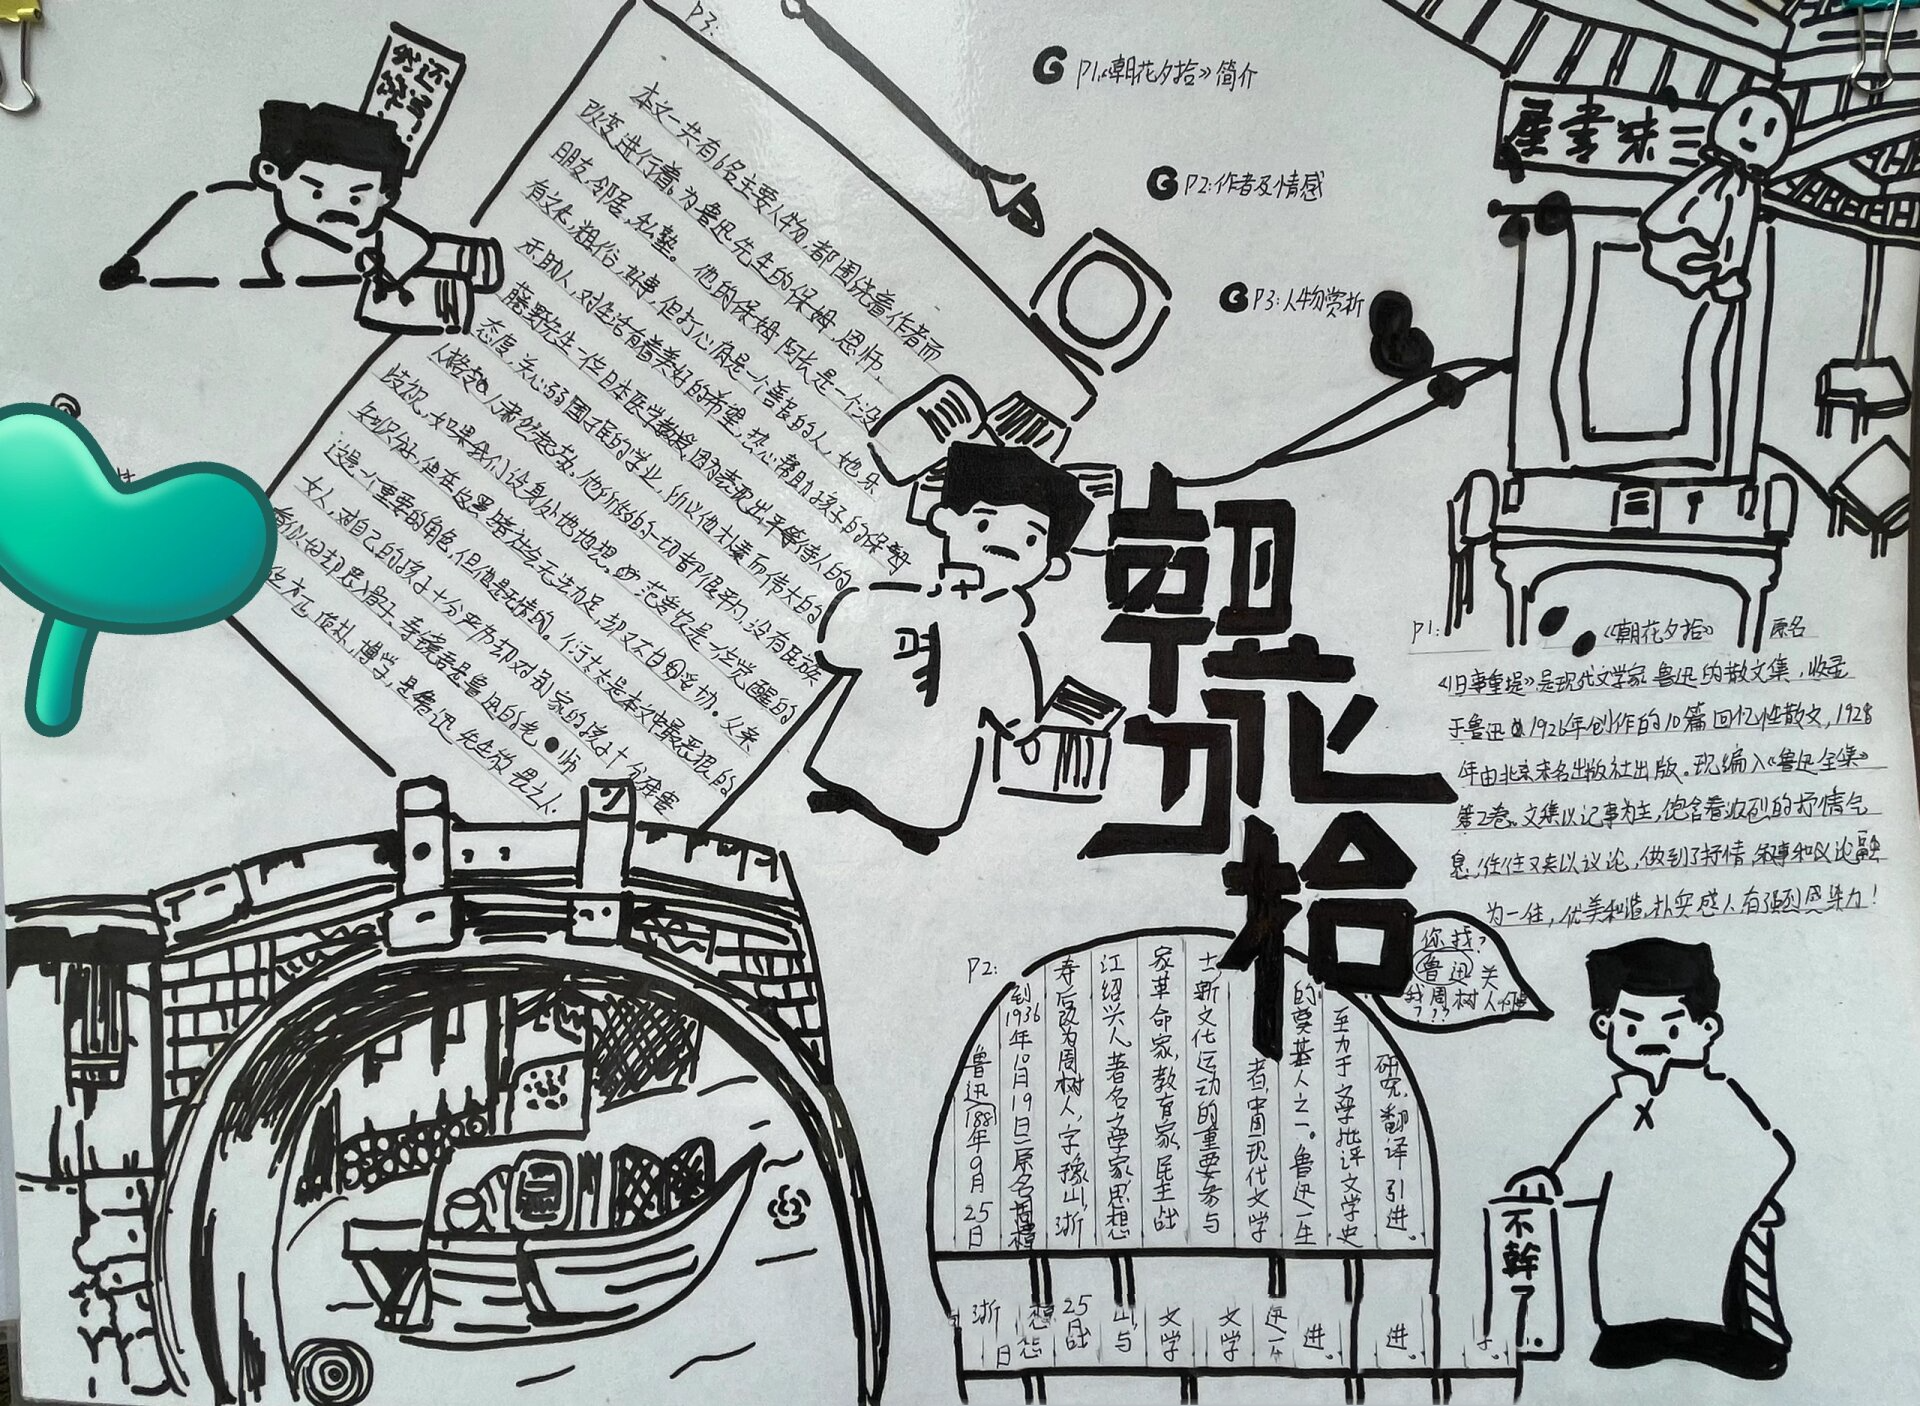 P1.《朝花夕拾》简介
P2:作者及情感
P3:人物赏析
三味書屋
朝花夕拾
P3:
本文一共有6名主要人物,都围绕着作者而
改变进行着。为鲁迅先生的保姆,恩师,
朋友,邻居,私塾。他的保姆阿长是一个没
有文化,粗俗,好事,但打心底是一个善良的人,她乐
于助人,对生活有着美好的希望,热心帮助孩子的保姆
藤野先生一位日本医学教授,因为表现出平等待人的
态度,关心弱国子民的学业,所以他朴素而伟大的
人格令人肃然起敬。他所做的一切都很平凡,没有民族
歧视,如果我们设身处地地想。范爱农是一位觉醒的
知识分子,但在这黑暗社会无法立足,却又不自妥协。父亲
这是一个重要的角色,但他是无情的。衍太太是本文中最恶狠的
女人,对自己的孩子十分严厉却对别家的孩子十分
寿镜吾是鲁迅的老师
方正,质朴,博学,是鲁迅先生敬畏之人.
P1:
《朝花夕拾》 原名
《旧事重提》是现代文学家鲁迅的散文集,收录
于鲁迅1926年创作的10篇回忆性散文,1928
年由北京未名出版社出版。现编入《鲁迅全集》
第2卷。文集以记事为主,饱含着浓烈的抒情气
息,往往又夹以议论,做到了抒情,叙事和议论融
为一住,优美和谐,朴实感人有强烈感染力!
P2:
鲁迅1881年9月25日
到1936年10月19日二原名周樟
寿后改为周树人,字豫山,浙
江绍兴人著名文学家思想
家革命家,教育家,民主战
士,新文化运动的重要参与
者,中国现代文学
的奠基人之一。鲁迅一生
至力于文学批评文学史
研究,翻译引进。
浙
想
日
25
山与
文学
文学
进。
进。
你找?
鲁迅关
我周树人
???
不幹了